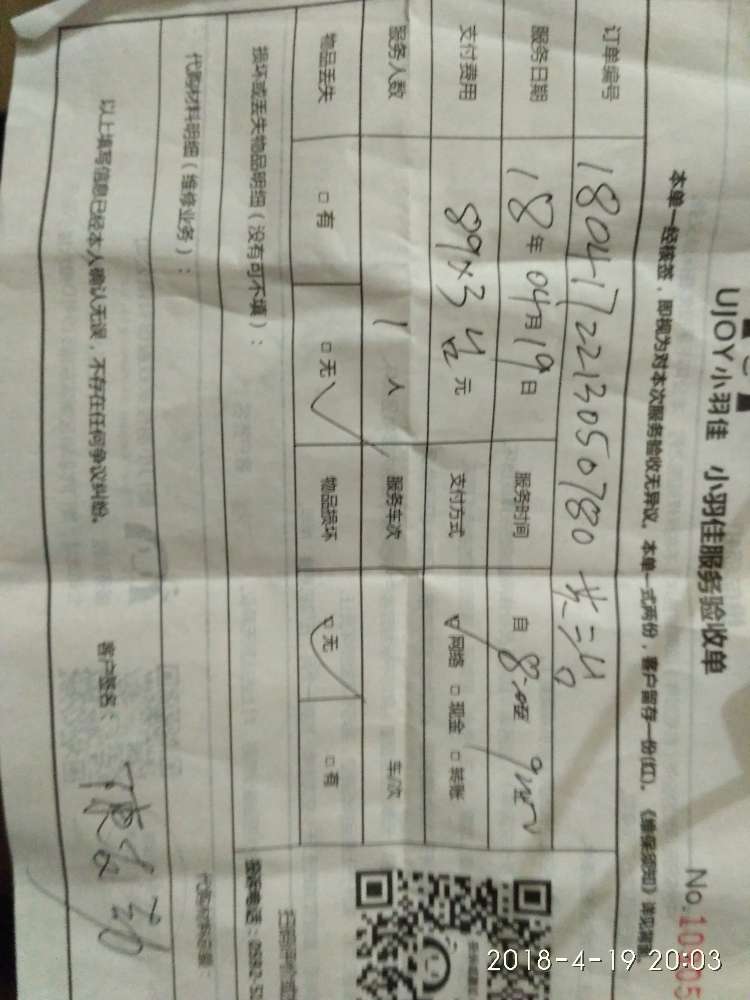 UJOY小羽佳 小羽佳服务验收单
No.10
本单一经核签，即视为对本次服务验收无异议。本单一式两份，客户留存一份(红)。《维保须知》详见背面
订单编号 1804172213050780
服务日期 18年04月19日 服务时间 自 8 至 9
支付费用 89×3 元 支付方式 网络 □现金 □转账
服务人数 1人 服务车次 车/次
物品丢失 □有 □无 物品损坏 □无 □有
损坏或丢失物品明细（没有可不填）：
代购材料明细（维修业务）：
以上填写信息已经本人确认无误，不存在任何争议纠纷。 客户签名：
2018-4-19 20:03